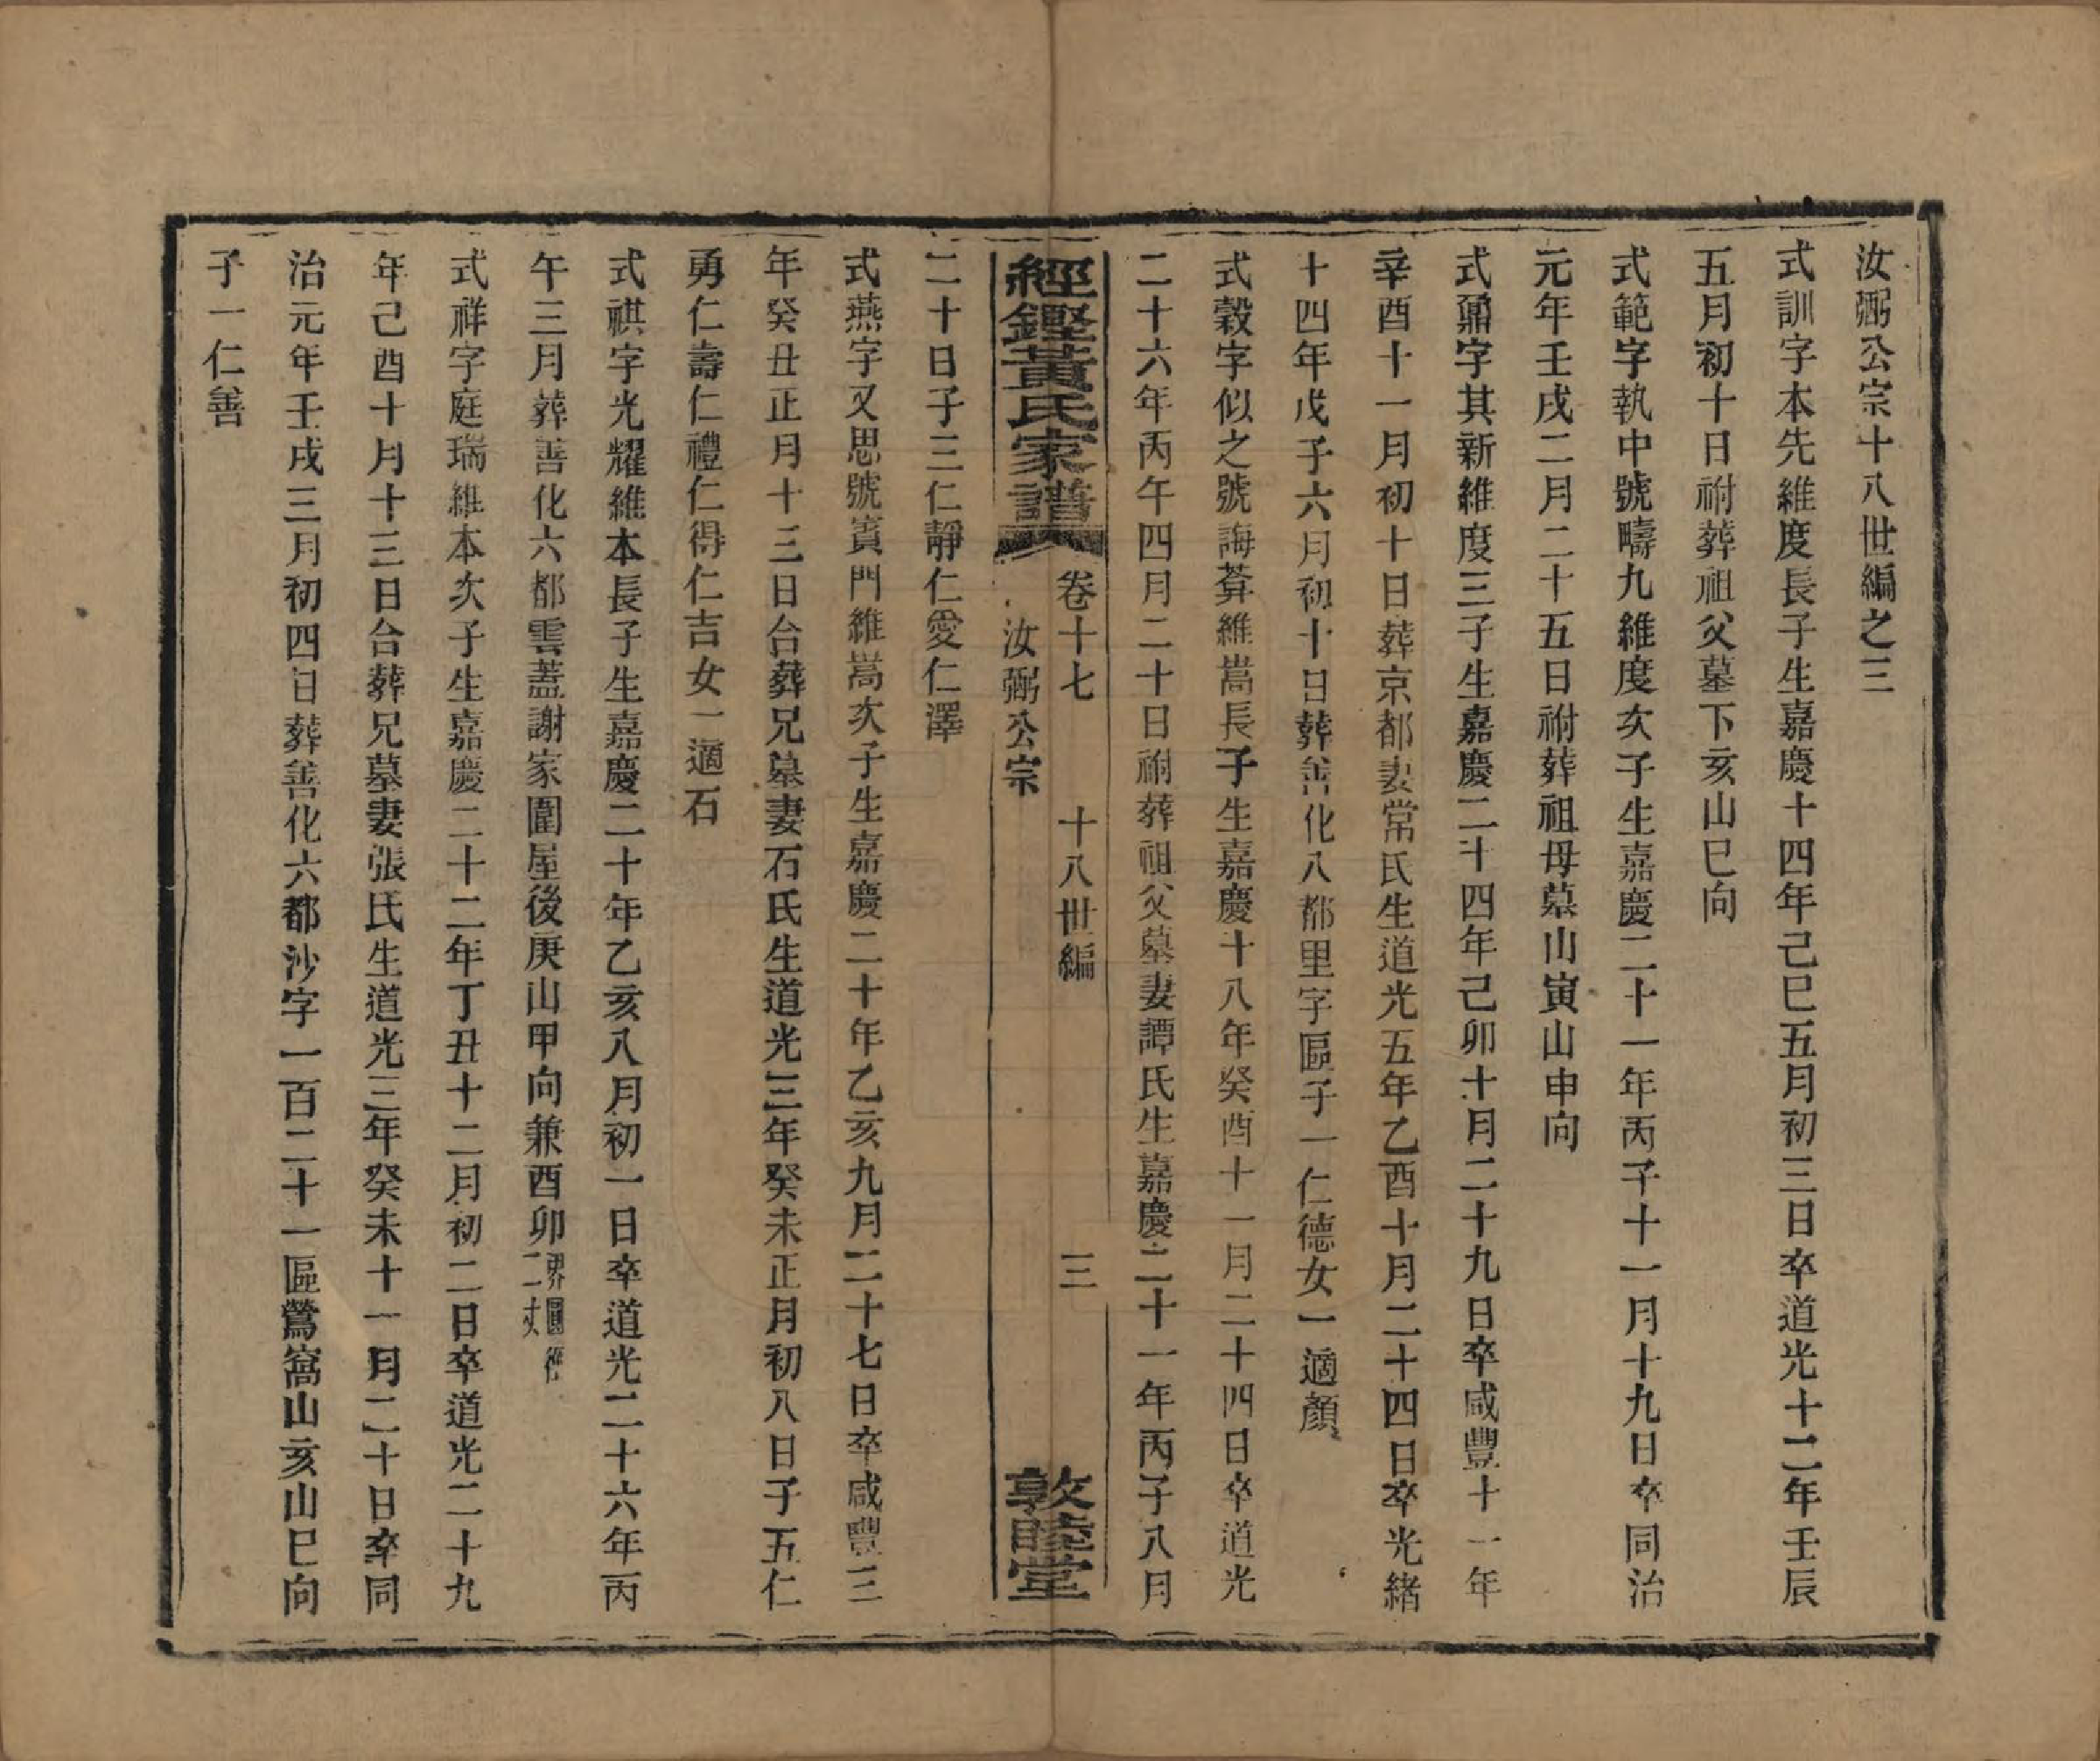 汝弼公宗十八世編之三
式訓字本先維度長子生嘉慶十四年己巳五月初三日卒道光十二年壬辰
五月初十日祔葬祖父墓下亥山巳向
式範字執中號疇九維度次子生嘉慶二十一年丙子十一月十九日卒同治
元年壬戌二月二十五日祔葬祖母墓山寅山申向
式鼐字其新維度三子生嘉慶二十四年己卯十月二十九日卒咸豐十一年
辛酉十一月初十日葬京都妻常氏生道光五年乙酉十月二十四日卒光緒
十四年戊子六月初十日葬善化八都里字區子一仁德女一適顏
式穀字似之號誨葊維嵩長子生嘉慶十八年癸酉十一月二十四日卒道光
二十六年丙午四月二十日祔葬祖父墓妻譚氏生嘉慶二十一年丙子八月
經鏗黃氏家譜
卷十七 十八世編 三
汝弼公宗
敦睦堂
二十日子三仁靜仁愛仁澤
式燕字又思號賓門維嵩次子生嘉慶二十年乙亥九月二十七日卒咸豐三
年癸丑正月十三日合葬兄墓妻石氏生道光三年癸未正月初八日子五仁
勇仁壽仁禮仁得仁吉女一適石
式祺字光耀維本長子生嘉慶二十年乙亥八月初一日卒道光二十六年丙
午三月葬善化六都雲蓋謝家圍屋後庚山甲向兼酉卯界圍
二丈
式祥字庭瑞維本次子生嘉慶二十二年丁丑十二月初二日卒道光二十九
年己酉十月十三日合葬兄墓妻張氏生道光三年癸未十一月二十日卒同
治元年壬戌三月初四日葬善化六都沙字一百二十一區鶯窩山亥山巳向
子一仁善